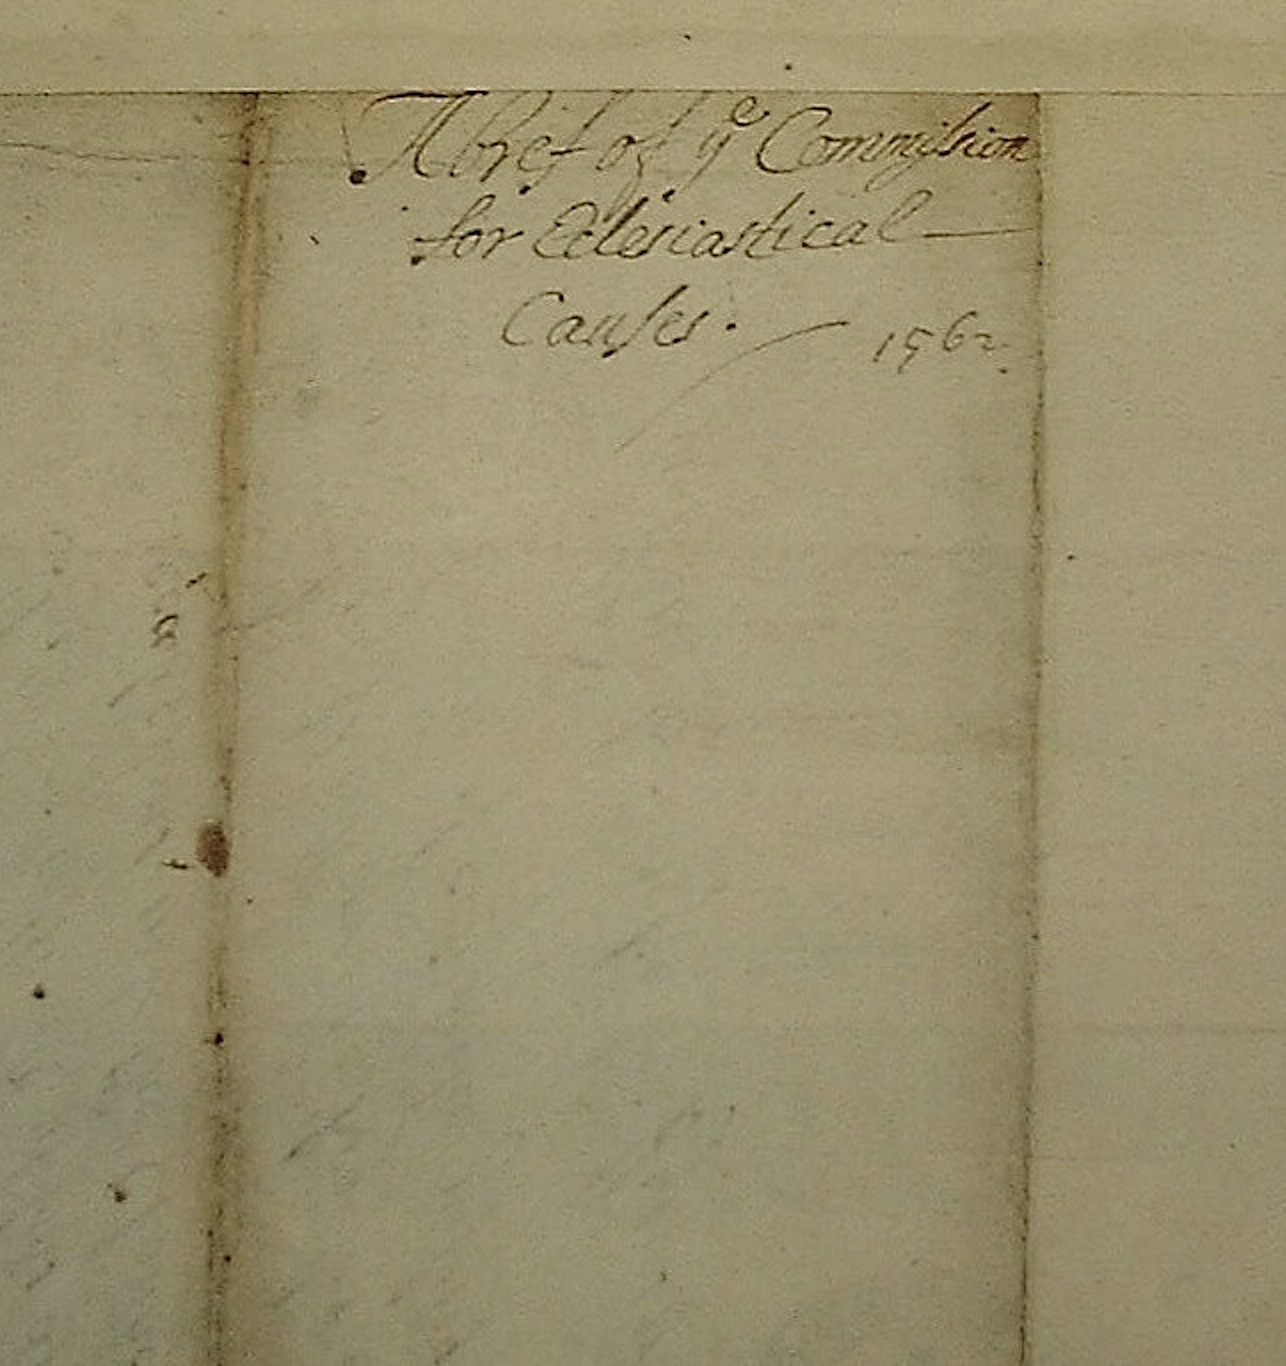 A bref of yͤ Commission
for Eclesiastical
Causes. 1562.